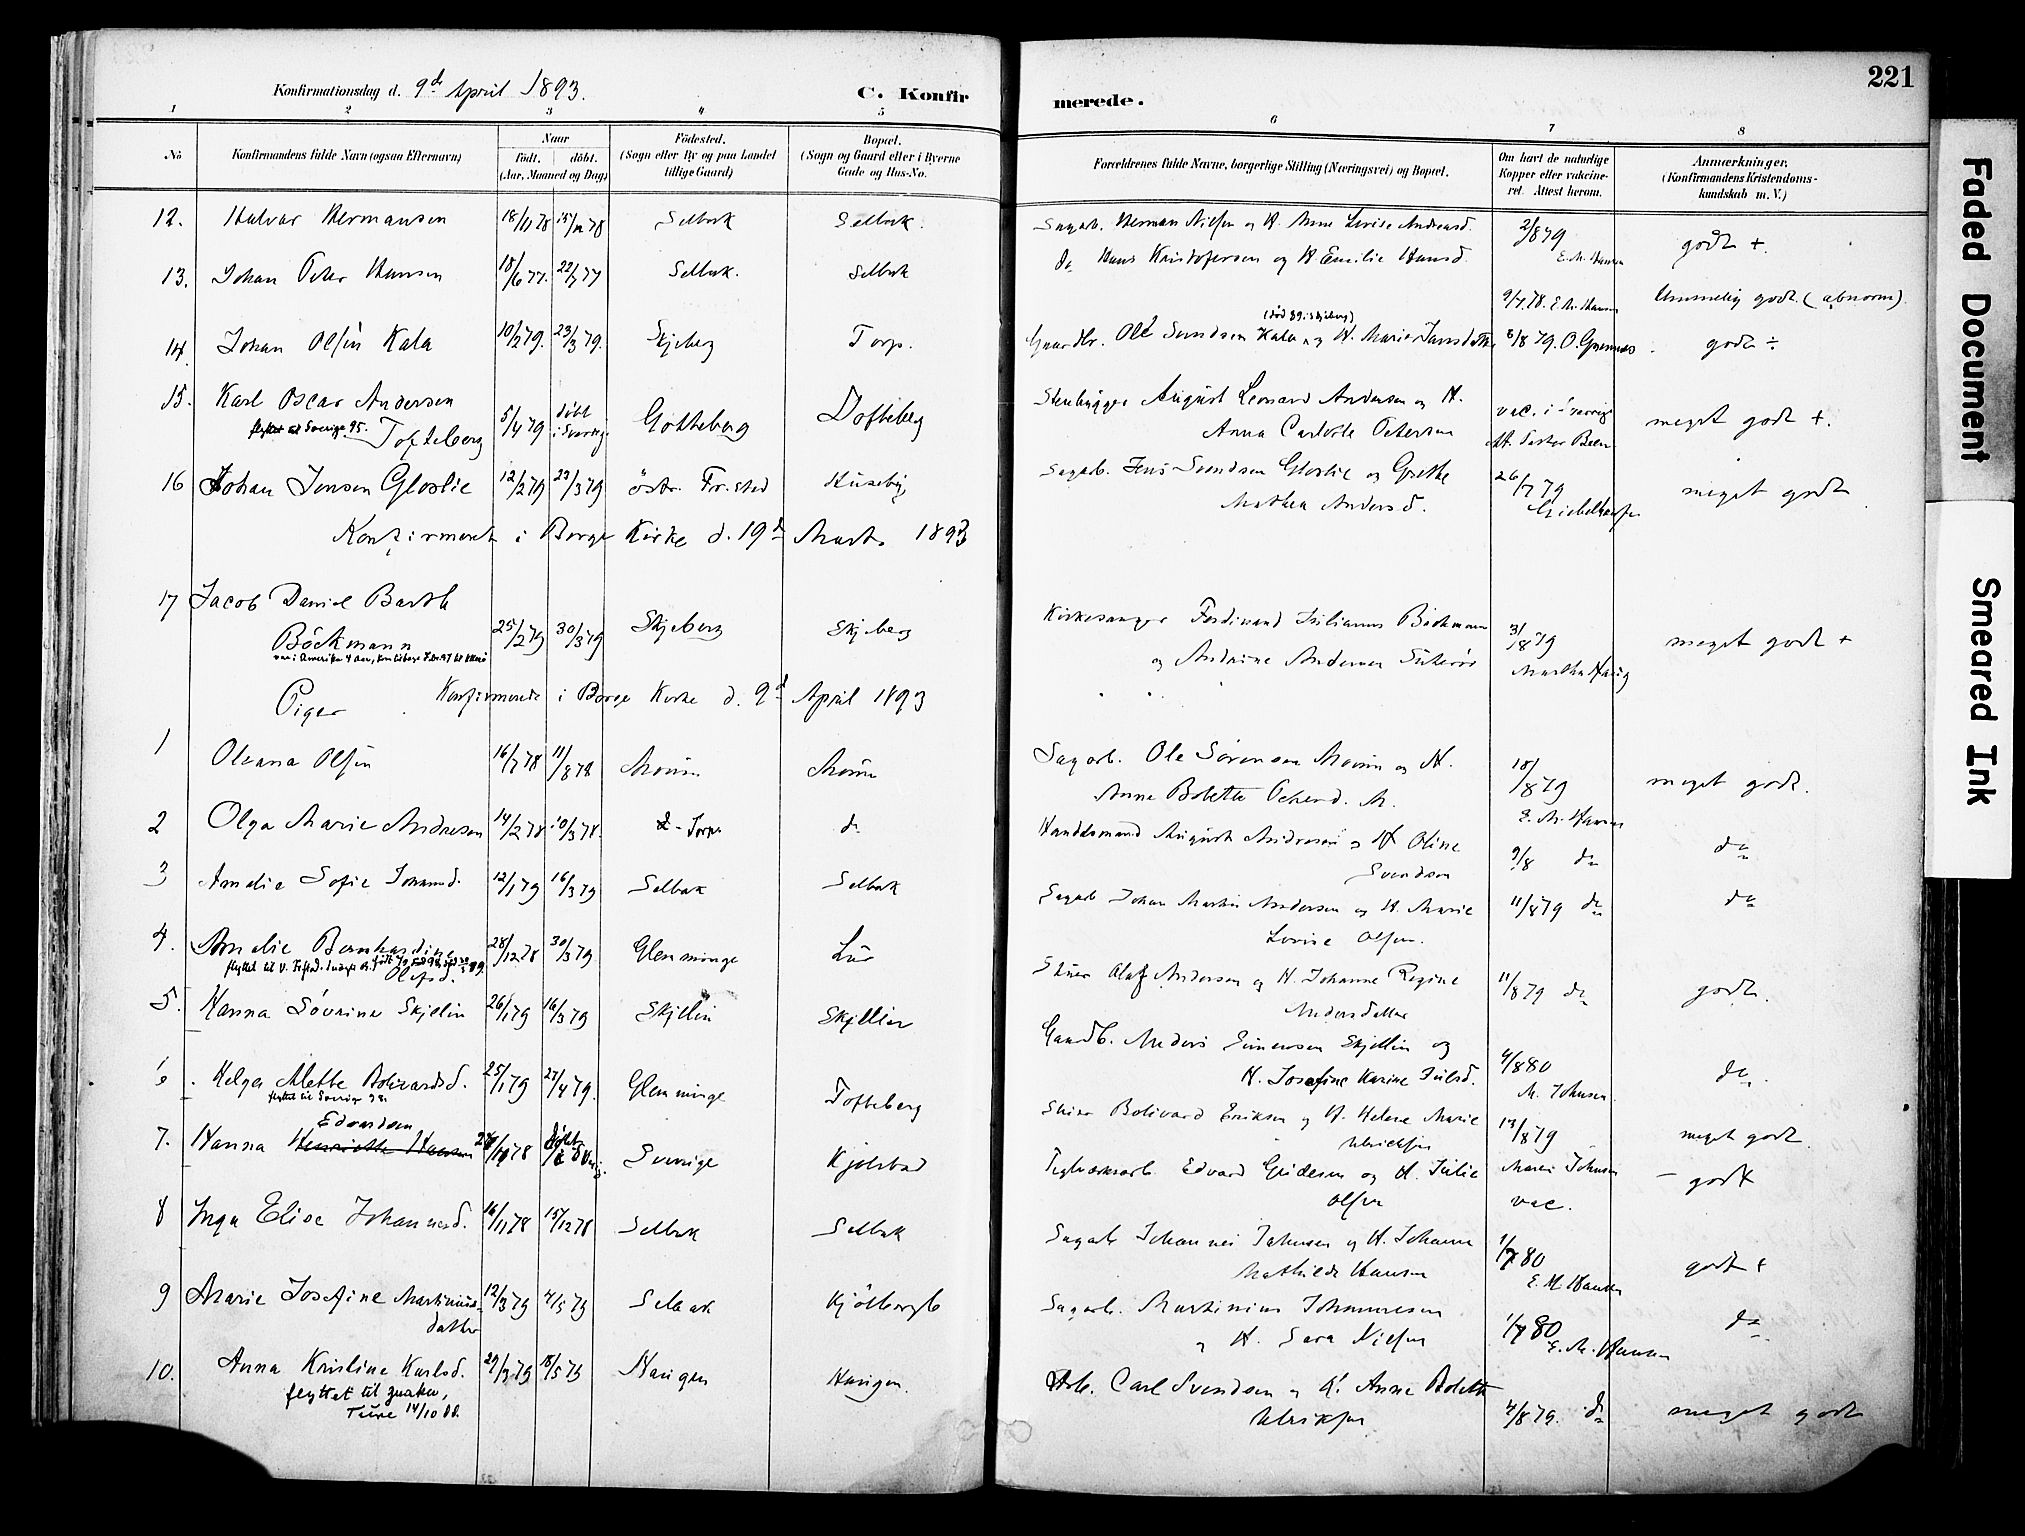 221
Konfirmationsdag d. 9de April 1893.
C. Konfirmerede.
1 2 3 4 5 6 7 8
No
Konfirmandens fulde Navn (ogsaa Efternavn)
Naar
født. døbt.
(Aar, Maaned og Dag)
Fødested.
(Sogn eller By og paa Landet
tillige Gaard)
Bopæl.
(Sogn og Gaard eller i Byerne
Gade og Hus-No.
Forældrenes fulde Navne, borgerlige Stilling (Næringsvei) og Bopæl.
Om havt de naturlige
Kopper eller vakcine-
ret. Attest herom.
Anmærkninger.
(Konfirmandens Kristendoms-
kundskab m. V.)
12. Halvar Hermansen 18/11 78 15/12 78 Selbak Selbak. Sagarb. Herman Nilsen og H. Anne Lovise Andreasd. 2/8 79 E. M. Hansen godt +.
13. Johan Peter Hansen 18/6 77. 22/7 77 Selbak. Selbak do Hans Kristofersen og H. Emilie Hansd. 9/7 78. E. M. Hansen Ummelig godt. (abnorm).
14. Johan Olsen Kala 10/2 79. 23/3 79. Skjeberg Torp. Gaardbr. Ole Svendsen Kala og H. Marie Jansdatter 8/8 79. godt ÷
(død 89 i Skjeberg)
15. Karl Oscar Andersen 5/4 79 døbt i Sverige Gøtteberg Tofteberg Stenhugger August Leonard Andersen og H.
flyttet til Sverige 95. Tofteberg
Anna Carlotte Petersen vac. i Sverige meget godt +.
16 Johan Jensen Gloslie 12/2 79 23/3 79 østr. Fr.sted Huseby Sagarb. Jens Svendsen Gloslie og Grethe
Mathea Andersd. 26/7 79 meget godt
Konfirmeret i Borge Kirke d. 19de Marts 1893
17 Jacob Daniel Barth
Böckmann 25/2 79 30/3 79 Skjeberg Skjeberg Kirkesanger Ferdinand Julianus Böckmann
og Andrine Andersen 3/8 79 meget godt +
Piger Konfirmerede i Borge Kirke d. 9de April 1893
1 Oleana Olsen 16/7 78 11/8 78 Moum Moum Sagarb. Ole Sørensen Moum og H.
Anne Bolette Peters d. M. 10/8 79 E. M. Hansen meget godt.
2 Olga Marie Andresen 14/2 78 10/3 78. Torp do Handelsmand August Andresen og H. Oline
Svendsen 9/8 do do
3 Amalie Sofie Johansd. 12/1 79 16/3 79 Selbak Selbak Sagarb Johan Martin Andersen og H. Marie
Lovise Olsen. 11/8 79 do do
4. Amalie Bernhardine
Olafsd. 28/12 78 30/3 79 Glemminge Lur Skuer Olaf Andersen og H. Johanne Regine
Andersdatter 11/8 79 do godt.
5. Hanna Sövrine Skjellin 26/1 79 16/3 79 Skjellin Skjellin Gaardb. Anders Simensen Skjellin og
H. Josefine Karine Julsd. 4/8 80 M. Johnsen. do.
6. Helga Alette Bolivardsd. 25/1 79 27/4 79. Glemminge Tofteberg Skuer Bolivard Eriksen og H. Helene Marie
flyttet til Sverige 98.
Ulriksen 13/8 79 meget godt.
7. Hanna Edvardsen Henriette Hansen 78 døbt i Sverige Sverige Kjølstad Teglværksarb. Edvard Gudesen og H. Julie
Olsen vac. – godt
8 Inga Elise Johannesd. 16/11 78 15/12 78 Selbak Selbak Sagarb Johannes Johnsen og H. Johanne
Mathilde Hansen 1/7 80 E. M. Hansen godt +
9 Marie Josefine Martinius-
datter 12/3 79 4/5 79 Selbak Kjölbergb Sagarb. Martinius Johannesen
og H. Sara Nilsen 1/7 80 E. M. Hansen do
10. Anna Kristine Karlsd. 29/3 79 18/5 79 Haugen Haugen. Arb. Carl Svendsen og H. Anne Bolette
flyttet til
Tune 14/10 00.
Ulriksen 4/8 79. do meget godt
Faded Document
Smeared Ink